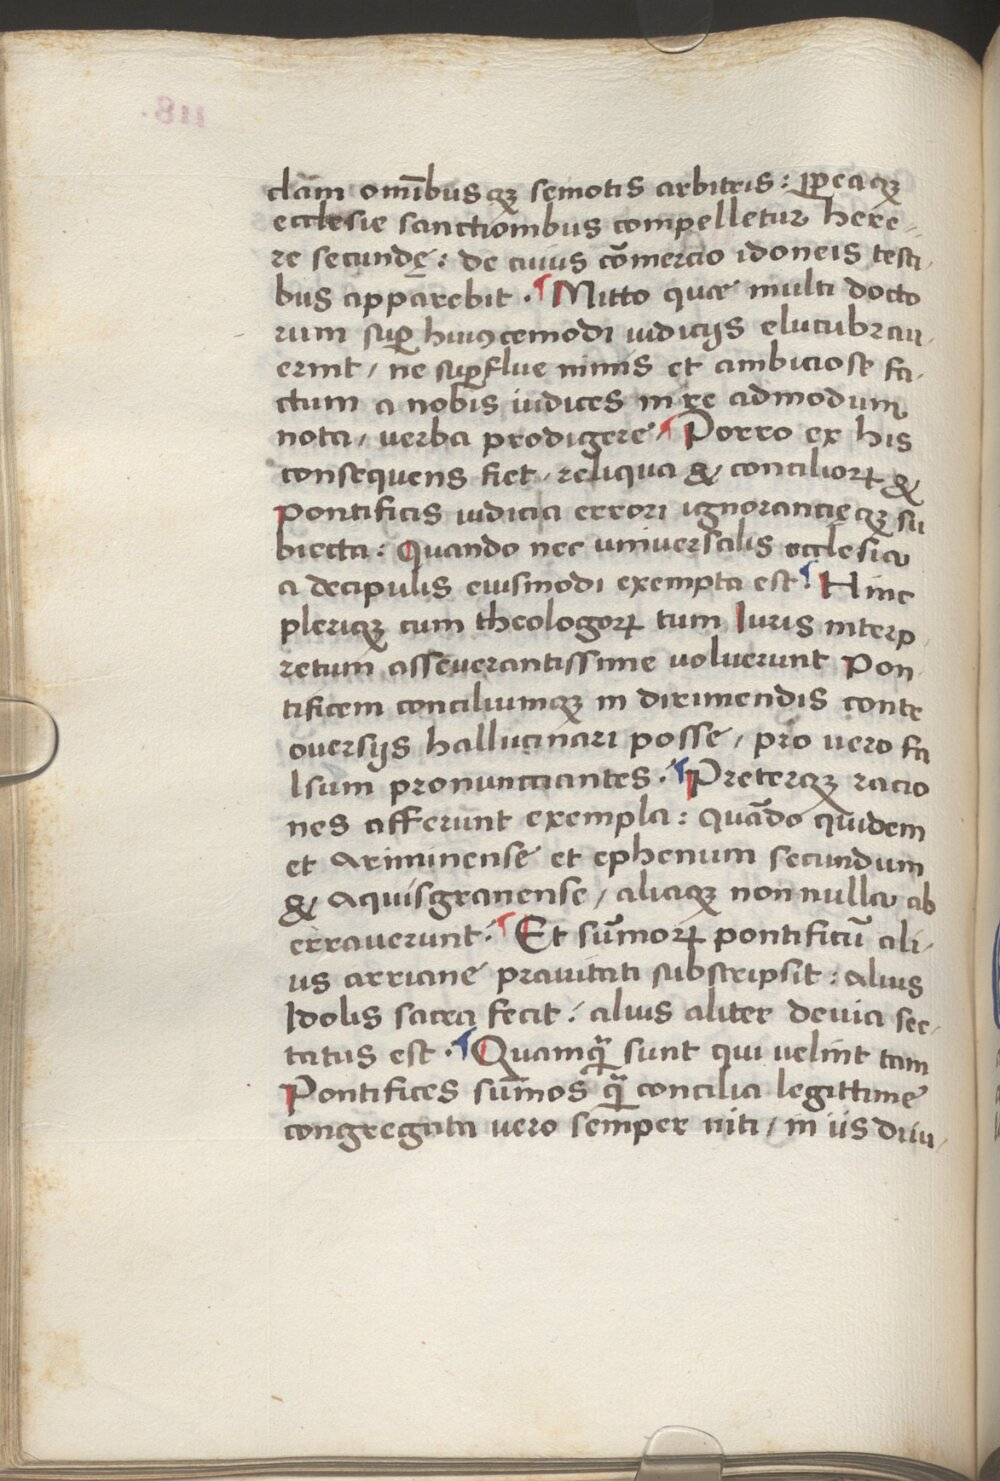 clam omībusqꝫ semotis arbitris : ꝓpeaqꝫ
ecclesie sanctionibus compelletur here-
re secundę : de cuius cōmercio idoneis testi-
bus apparebit . ¶ Mitto que multi docto
rum suꝑ huiꝰcemodi iudicijs elucubrau-
erint / ne suꝑflue nimis et ambiciose fa-
ctum a nobis iudices in re admodum
nota / verba prodigere ¶ Porro ex his
consequens fiet . reliqua & conciliorꝝ &
pontificis iudicia errori ignorancięqꝫ su
biecta : Quando nec universalis ecclesia
a decipulis eiusmodi exempta est ¶ Hinc
pleriqꝫ cum theologorꝝ tum Iuris interp
retum asseverantissime voluerunt Pon-
tificem conciliumqꝫ in dirimendis contr
oversijs hallucinari posse / pro vero fa
lsum pronuncciantes . ¶ Pretereqꝫ racio
nes afferunt exempla : quādo quidem
et Ariminense et ephenum secundum
& Aquisgranense / aliaqꝫ non nulla ab
erraverunt . ¶ Et sum̄orꝝ pontificū ali-
us arriane pravitati subscripsit : Alius
Idolis sacra fecit : alius aliter devia sec-
tatus est . ¶ Quamqᷓ sunt qui velint tam
Pontifices sum̄os qᷓ concilia legittime
congregata vero semper niti / in iis diiu-
118.